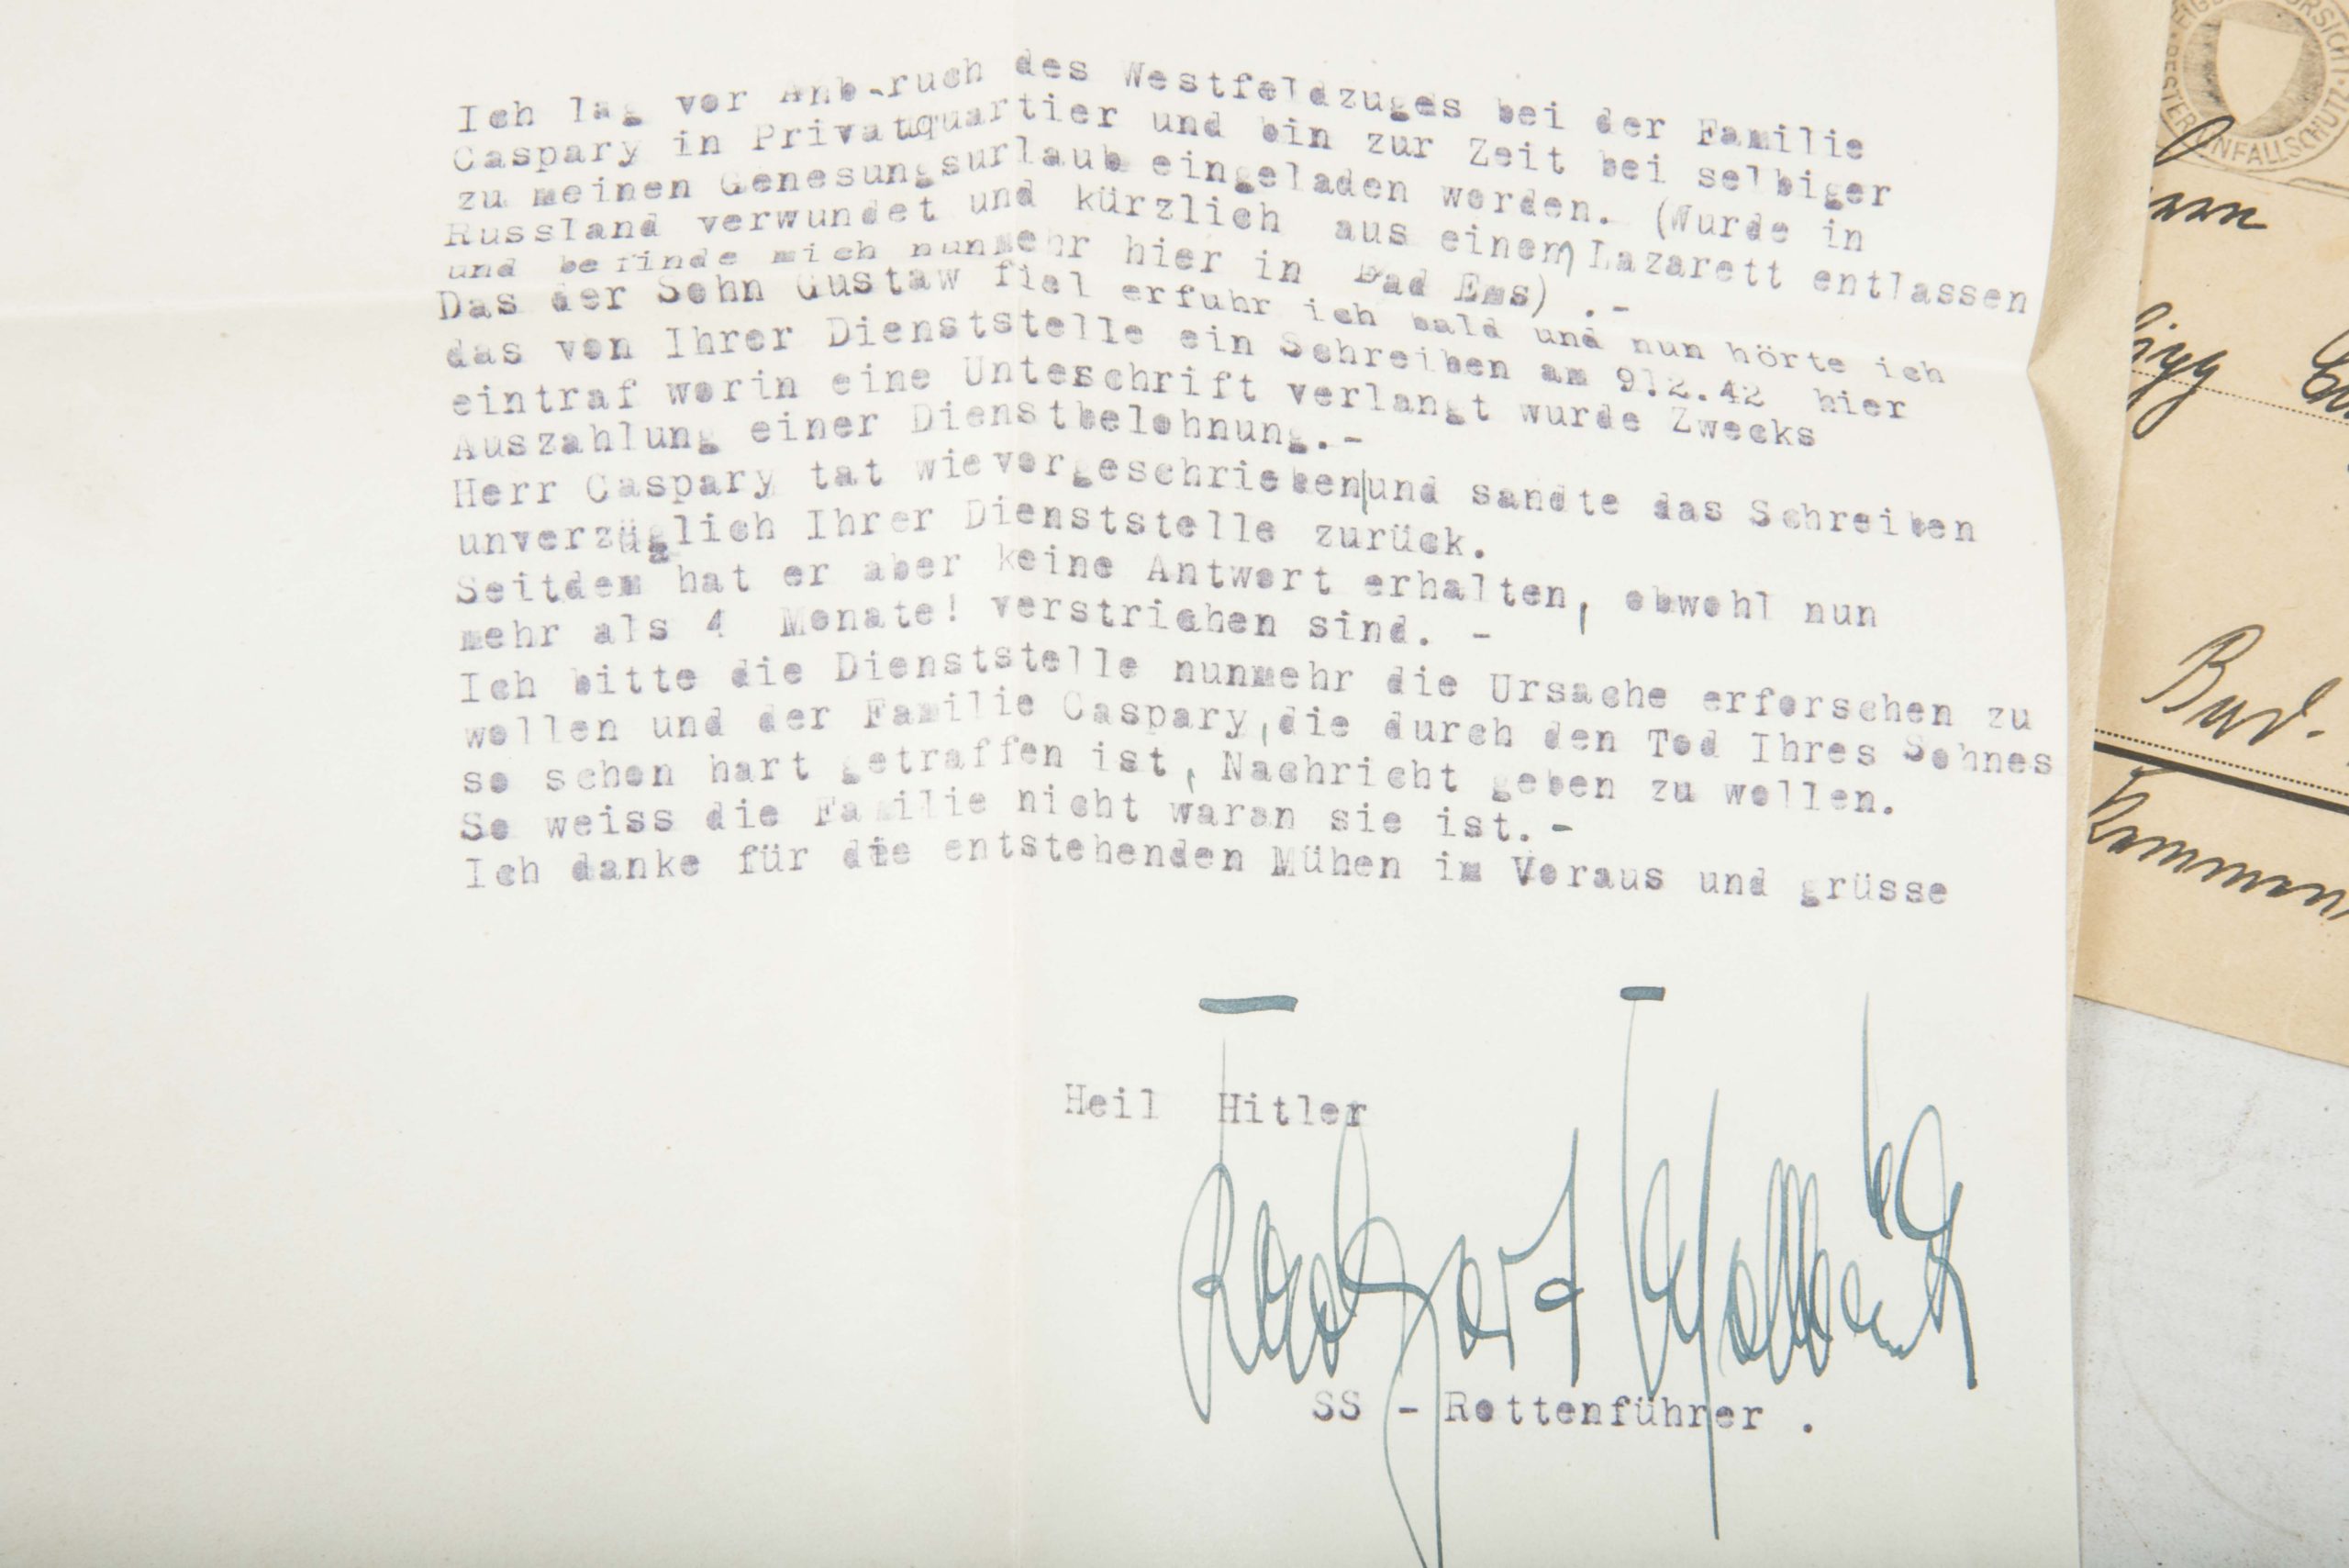 Ich lag vor Anb-ruch des Westfeldzuges bei der Familie
Caspary in Privatquartier und bin zur Zeit bei selbiger
zu meinen Genesungsurlaub eingeladen worden. (Wurde in
Russland verwundet und kürzlich aus einem Lazarett entlassen
und befinde mich nunmehr hier in Bad Ems) .-
Das der Sohn Gustaw fiel erfuhr ich bald und nun hörte ich
das von Ihrer Dienststelle ein Schreiben am 9.2.42 hier
eintraf worin eine Unterschrift verlangt wurde Zwecks
Auszahlung einer Dienstbelohnung.-
Herr Caspary tat wie vorgeschrieben|und sandte das Schreiben
unverzüglich Ihrer Dienststelle zurück.
Seitdem hat er aber keine Antwort erhalten, obwohl nun
mehr als 4 Monate! verstrichen sind. -
Ich bitte die Dienststelle nunmehr die Ursache erforschen zu
wollen und der Familie Caspary, die durch den Tod Ihres Sohnes
so schon hart getraffen ist, Nachricht geben zu wollen.
So weiss die Familie nicht waran sie ist.-
Ich danke für die entstehenden Mühen im Voraus und grüsse
Heil Hitler
SS - Rottenführer .
UNFALLSCHUTZ
Bad.